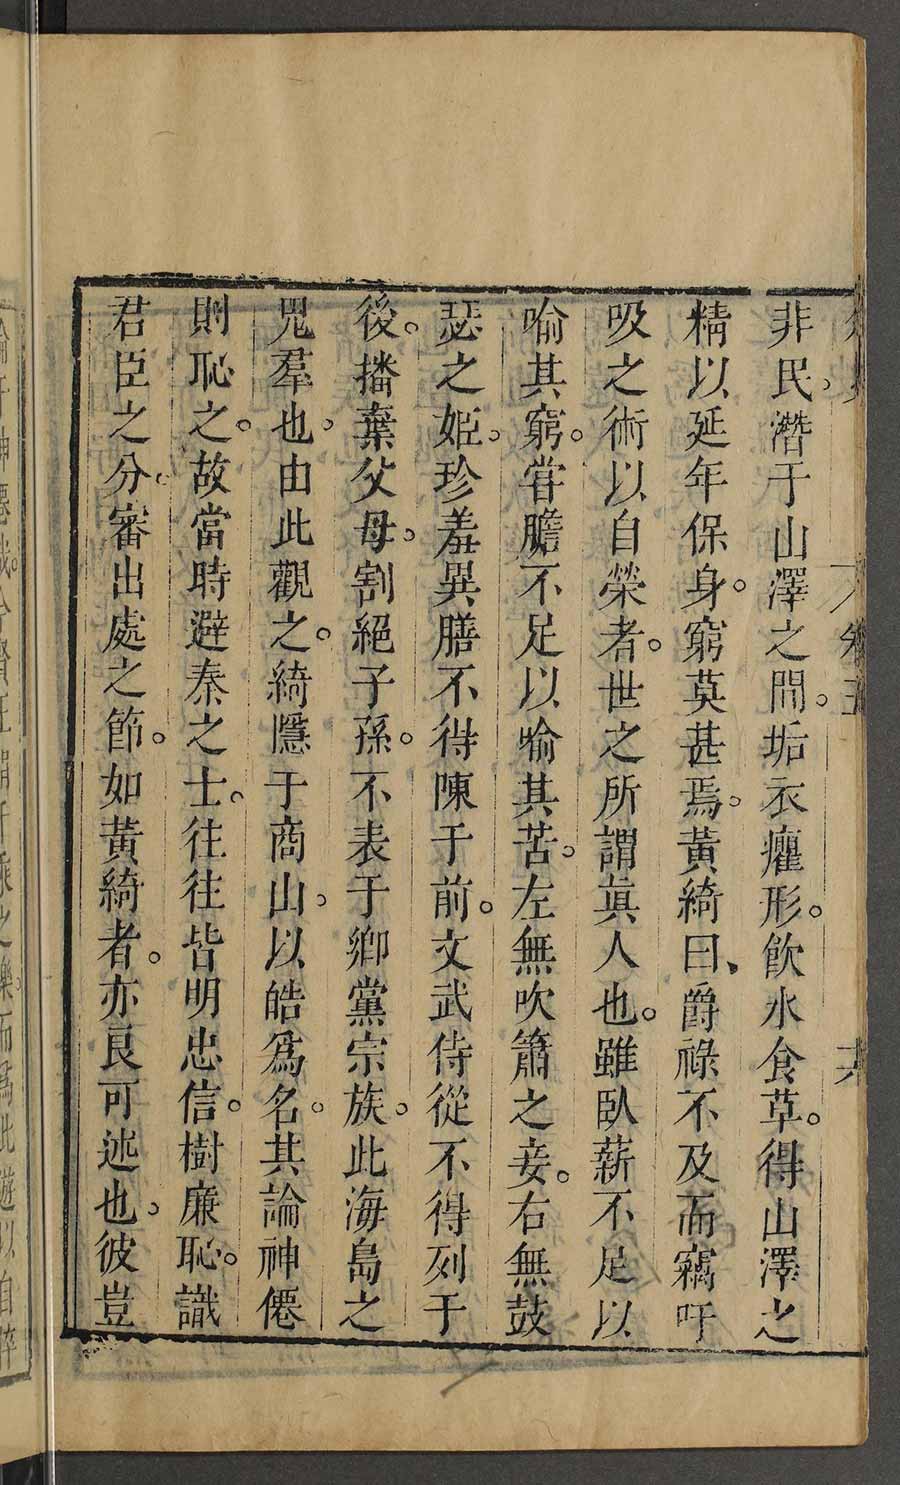 非民。潛于山澤之間。垢衣癯形。飲水食草。得山澤之
精以延年保身。窮莫甚焉。黃綺曰、爵祿不及而竊吁
吸之術以自榮者。世之所謂眞人也。雖臥薪不足以
喻其窮。甞膽不足以喻其苦。左無吹簫之妾。右無鼓
瑟之姬。珍羞異膳不得陳于前。文武侍從不得列于
後。播棄父母。割絕子孫。不表于鄉黨宗族。此海島之
鬼羣也。由此觀之。綺隱于商山。以皓爲名。其論神僊
則恥之。故當時避秦之士。往往皆明忠信。樹廉恥。識
君臣之分。審出處之節。如黃綺者。亦良可述也。彼豈